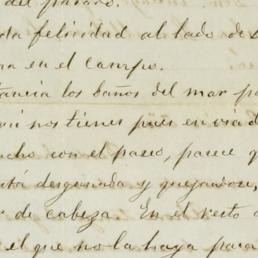 del pasado.
da felicidad al lado de
en el campo.
tancia los baños del mar
nos tienes pues en
cho con el paseo, parece q
tá desganada y quejandose,
de cabeza. En el resto
el que no la haya para